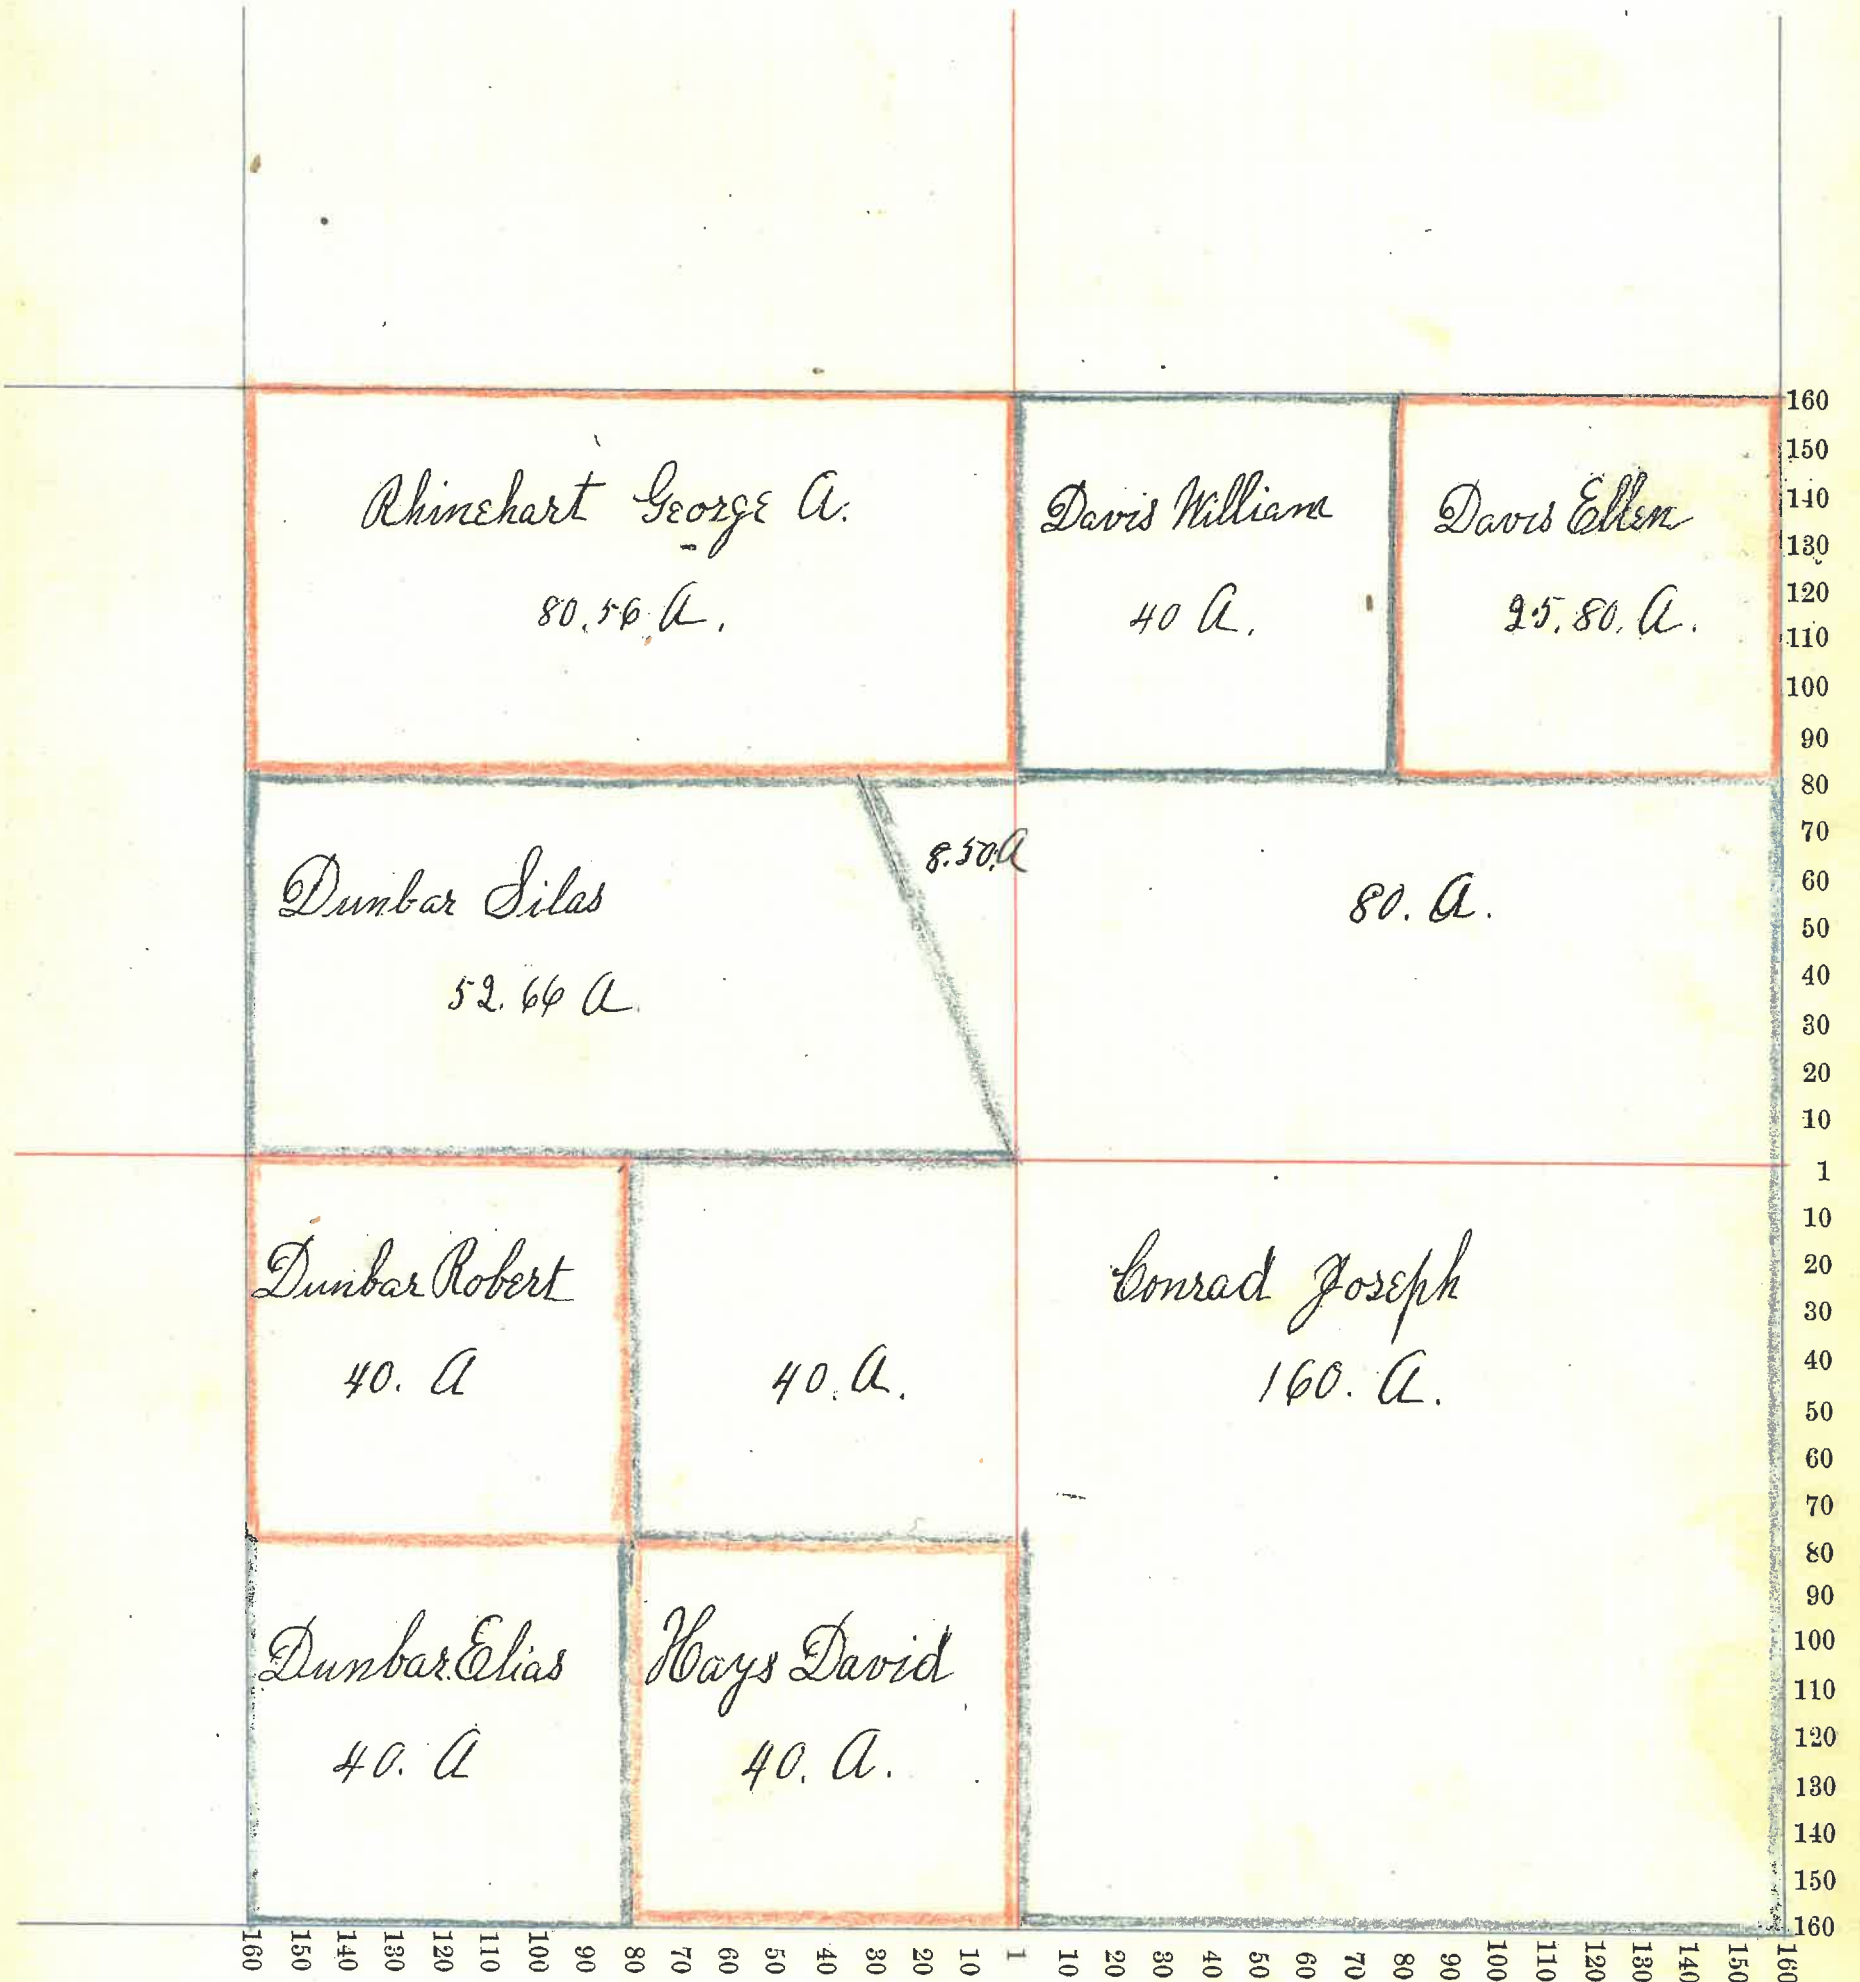 Rhinehart George A.
80.56 A.
Davis William
40 A.
Davis Ellen
25.80. A.
Dunbar Silas
52.66 A.
8.50. A
80. A.
Dunbar Robert
40. A
40. A.
Conrad Joseph
160. A.
Dunbar Elias
40. A
Hays David
40. A.
160
150
140
130
120
110
100
90
80
70
60
50
40
30
20
10
1
10
20
30
40
50
60
70
80
90
100
110
120
130
140
150
160
160 150 140 130 120 110 100 90 80 70 60 50 40 30 20 10 1 10 20 30 40 50 60 70 80 90 100 110 120 130 140 150 160